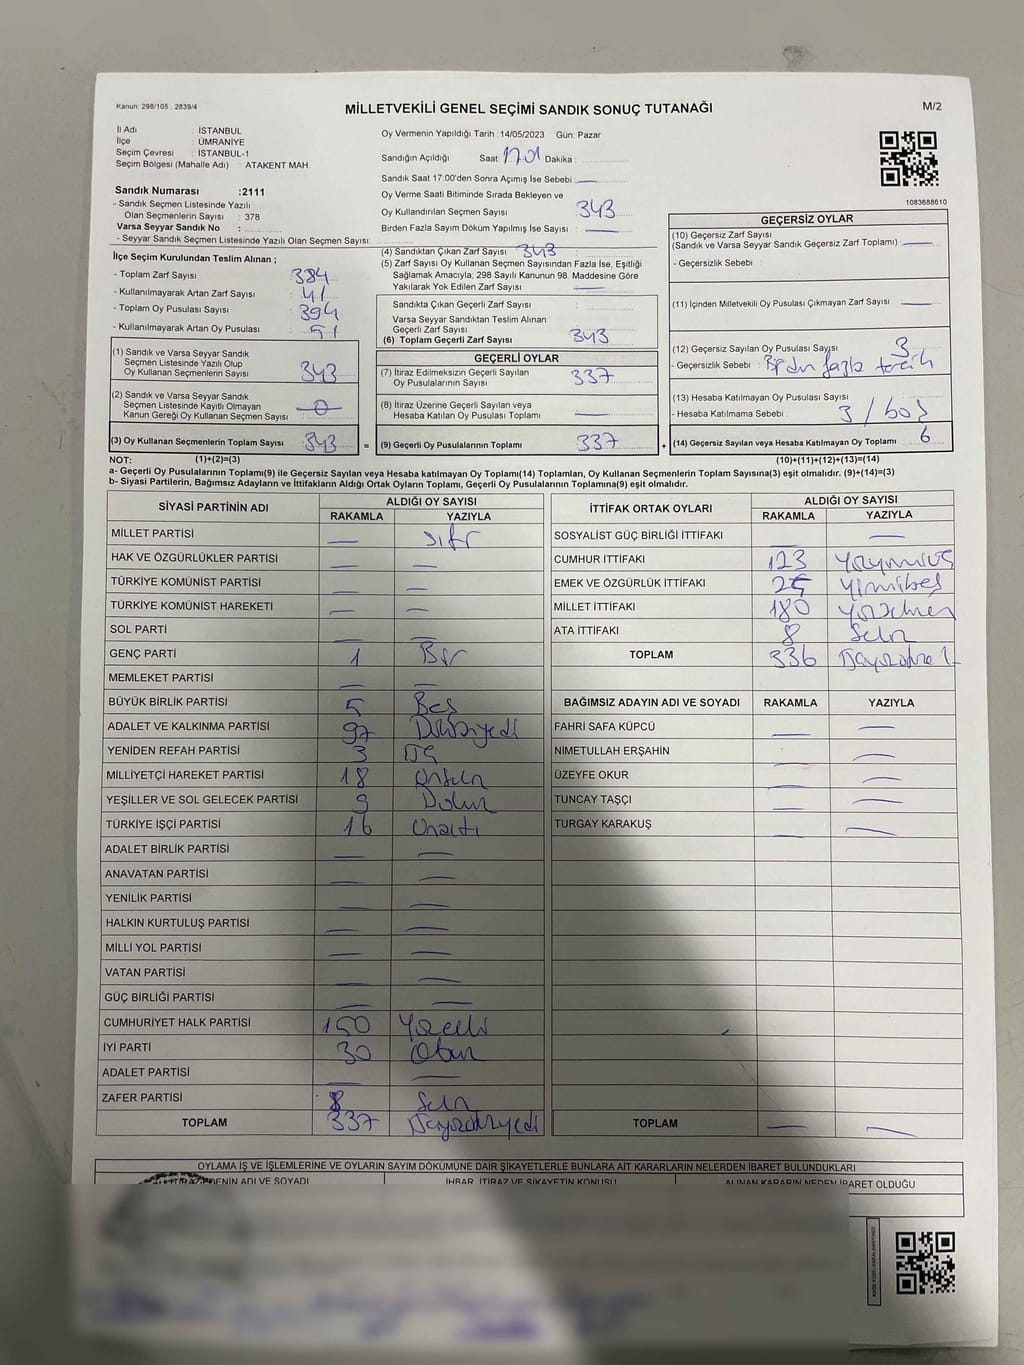 Kanun: 298/105 , 2839/4
MİLLETVEKİLİ GENEL SEÇİMİ SANDIK SONUÇ TUTANAĞI
M/2
İl Adı : İSTANBUL
İlçe : ÜMRANİYE
Seçim Çevresi : İSTANBUL-1
Seçim Bölgesi (Mahalle Adı) : ATAKENT MAH.
Sandık Numarası :2111
- Sandık Seçmen Listesinde Yazılı
Olan Seçmenlerin Sayısı : 378
Varsa Seyyar Sandık No :
- Seyyar Sandık Seçmen Listesinde Yazılı Olan Seçmen Sayısı:
Oy Vermenin Yapıldığı Tarih :14/05/2023 Gün: Pazar
Sandığın Açıldığı Saat: 1701 Dakika :
Sandık Saat 17:00'den Sonra Açımış İse Sebebi : —
Oy Verme Saati Bitiminde Sırada Bekleyen ve
Oy Kullandırılan Seçmen Sayısı : 343
Birden Fazla Sayım Döküm Yapılmış İse Sayısı : —
1083688610
İlçe Seçim Kurulundan Teslim Alınan ;
- Toplam Zarf Sayısı : 384
- Kullanılmayarak Artan Zarf Sayısı : 41
- Toplam Oy Pusulası Sayısı : 394
- Kullanılmayarak Artan Oy Pusulası : 51
(1) Sandık ve Varsa Seyyar Sandık
Seçmen Listesinde Yazılı Olup
Oy Kullanan Seçmenlerin Sayısı : 343
(2) Sandık ve Varsa Seyyar Sandık
Seçmen Listesinde Kayıtlı Olmayan
Kanun Gereği Oy Kullanan Seçmen Sayısı : 0
(3) Oy Kullanan Seçmenlerin Toplam Sayısı : 343 =
(4) Sandıktan Çıkan Zarf Sayısı : 343
(5) Zarf Sayısı Oy Kullanan Seçmen Sayısından Fazla İse, Eşitliği
Sağlamak Amacıyla; 298 Sayılı Kanunun 98. Maddesine Göre
Yakılarak Yok Edilen Zarf Sayısı : —
Sandıkta Çıkan Geçerli Zarf Sayısı :
Varsa Seyyar Sandıktan Teslim Alınan
Geçerli Zarf Sayısı :
(6) Toplam Geçerli Zarf Sayısı : 343
GEÇERLİ OYLAR
(7) İtiraz Edilmeksizin Geçerli Sayılan
Oy Pusulalarının Sayısı : 337
(8) İtiraz Üzerine Geçerli Sayılan veya
Hesaba Katılan Oy Pusulası Toplamı : —
(9) Geçerli Oy Pusulalarının Toplamı : 337 +
GEÇERSİZ OYLAR
(10) Geçersiz Zarf Sayısı
(Sandık ve Varsa Seyyar Sandık Geçersiz Zarf Toplamı) : —
- Geçersizlik Sebebi :
(11) İçinden Milletvekili Oy Pusulası Çıkmayan Zarf Sayısı : —
(12) Geçersiz Sayılan Oy Pusulası Sayısı : 3
- Geçersizlik Sebebi : Birden fazla tercih
(13) Hesaba Katılmayan Oy Pusulası Sayısı :
- Hesaba Katılmama Sebebi : 3 / boş
(14) Geçersiz Sayılan veya Hesaba Katılmayan Oy Toplamı : 6
NOT: (1)+(2)=(3) (10)+(11)+(12)+(13)=(14)
a- Geçerli Oy Pusulalarının Toplamı(9) ile Geçersiz Sayılan veya Hesaba katılmayan Oy Toplamı(14) Toplamları, Oy Kullanan Seçmenlerin Toplam Sayısına(3) eşit olmalıdır. (9)+(14)=(3)
b- Siyasi Partilerin, Bağımsız Adayların ve İttifakların Aldığı Ortak Oyların Toplamı, Geçerli Oy Pusulalarının Toplamına(9) eşit olmalıdır.
SİYASİ PARTİNİN ADI ALDIĞI OY SAYISI
RAKAMLA YAZIYLA
MİLLET PARTİSİ — sıfır
HAK VE ÖZGÜRLÜKLER PARTİSİ — —
TÜRKİYE KOMÜNİST PARTİSİ — —
TÜRKİYE KOMÜNİST HAREKETİ — —
SOL PARTİ — —
GENÇ PARTİ 1 Bir
MEMLEKET PARTİSİ — —
BÜYÜK BİRLİK PARTİSİ 5 Beş
ADALET VE KALKINMA PARTİSİ 97 Doksanyedi
YENİDEN REFAH PARTİSİ 3 Üç
MİLLİYETÇİ HAREKET PARTİSİ 18 Onsekiz
YEŞİLLER VE SOL GELECEK PARTİSİ 9 Dokuz
TÜRKİYE İŞÇİ PARTİSİ 16 Onaltı
ADALET BİRLİK PARTİSİ — —
ANAVATAN PARTİSİ — —
YENİLİK PARTİSİ — —
HALKIN KURTULUŞ PARTİSİ — —
MİLLİ YOL PARTİSİ — —
VATAN PARTİSİ — —
GÜÇ BİRLİĞİ PARTİSİ — —
CUMHURİYET HALK PARTİSİ 150 Yüzelli
İYİ PARTİ 30 Otuz
ADALET PARTİSİ — —
ZAFER PARTİSİ 8 Sekiz
TOPLAM 337 Üçyüzotuzyedi
İTTİFAK ORTAK OYLARI ALDIĞI OY SAYISI
RAKAMLA YAZIYLA
SOSYALİST GÜÇ BİRLİĞİ İTTİFAKI —
CUMHUR İTTİFAKI 123 Yüzyirmiüç
EMEK VE ÖZGÜRLÜK İTTİFAKI 25 Yirmibeş
MİLLET İTTİFAKI 180 Yüzseksen
ATA İTTİFAKI 8 Sekiz
TOPLAM 336
BAĞIMSIZ ADAYIN ADI VE SOYADI RAKAMLA YAZIYLA
FAHRİ SAFA KÜPCÜ — —
NİMETULLAH ERŞAHİN — —
ÜZEYFE OKUR — —
TUNCAY TAŞÇI — —
TURGAY KARAKUŞ — —
TOPLAM — —
OYLAMA İŞ VE İŞLEMLERİNE VE OYLARIN SAYIM DÖKÜMÜNE DAİR ŞİKAYETLERLE BUNLARA AİT KARARLARIN NELERDEN İBARET BULUNDUKLARI
ADI VE SOYADI İHBAR, İTİRAZ VE ŞİKAYETİN KONUSU ALINAN KARARIN NEDEN İBARET OLDUĞU